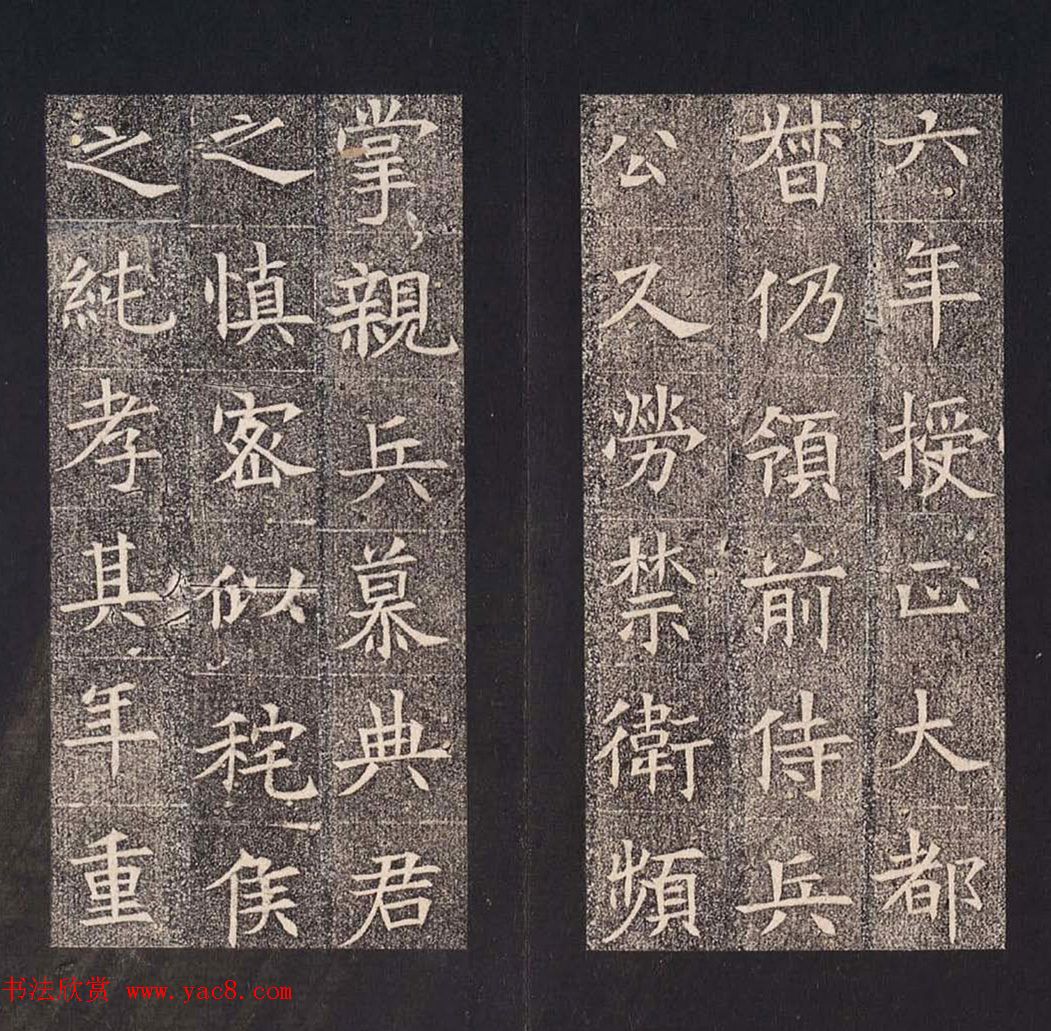 六年授正大都
督仍領前侍兵
公久勞禁衛頻
掌親兵慕典君
之慎密似秺侯
之純孝其年重
书法欣赏 www.yac8.com